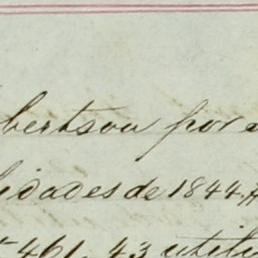 bertson por
idades de 1844
461.43 utili